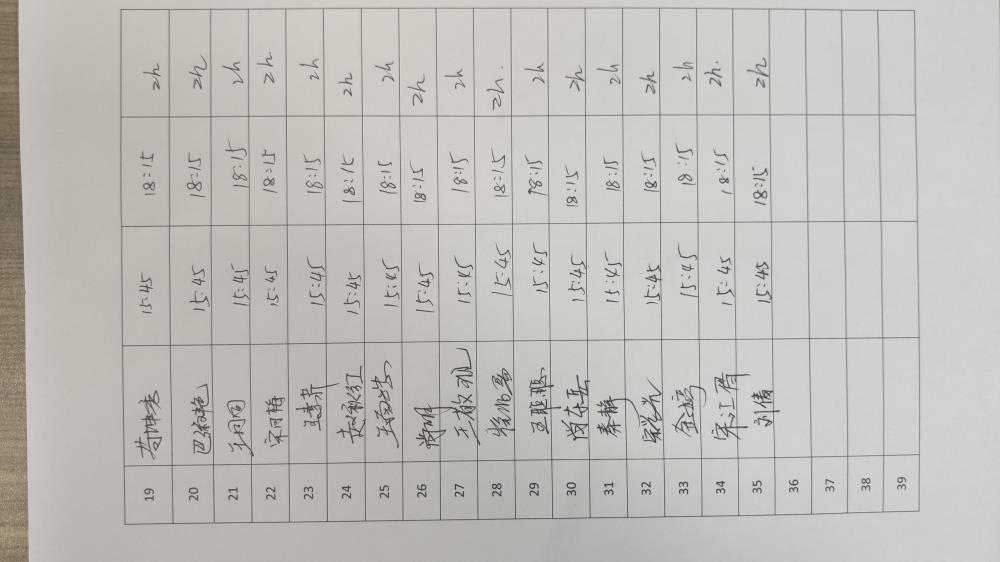 19 15:45 18:15 2h
20 15:45 18:15 2h
21 王同同 15:45 18:15 2h
22 宋向梅 15:45 18:15 2h
23 15:45 18:15 2h
24 赵秋红 15:45 18:15 2h
25 15:45 18:15 2h
26 尚明 15:45 18:15 2h
27 王敏 15:45 18:15 2h
28 15:45 18:15 2h.
29 王聪聪 15:45 18:15 2h
30 尚东岳 15:45 18:15 2h
31 秦静 15:45 18:15 2h
32 15:45 18:15 2h
33 15:45 18:15 2h
34 宋江 15:45 18:15 2h.
35 刘倩 15:45 18:15 2h
36
37
38
39